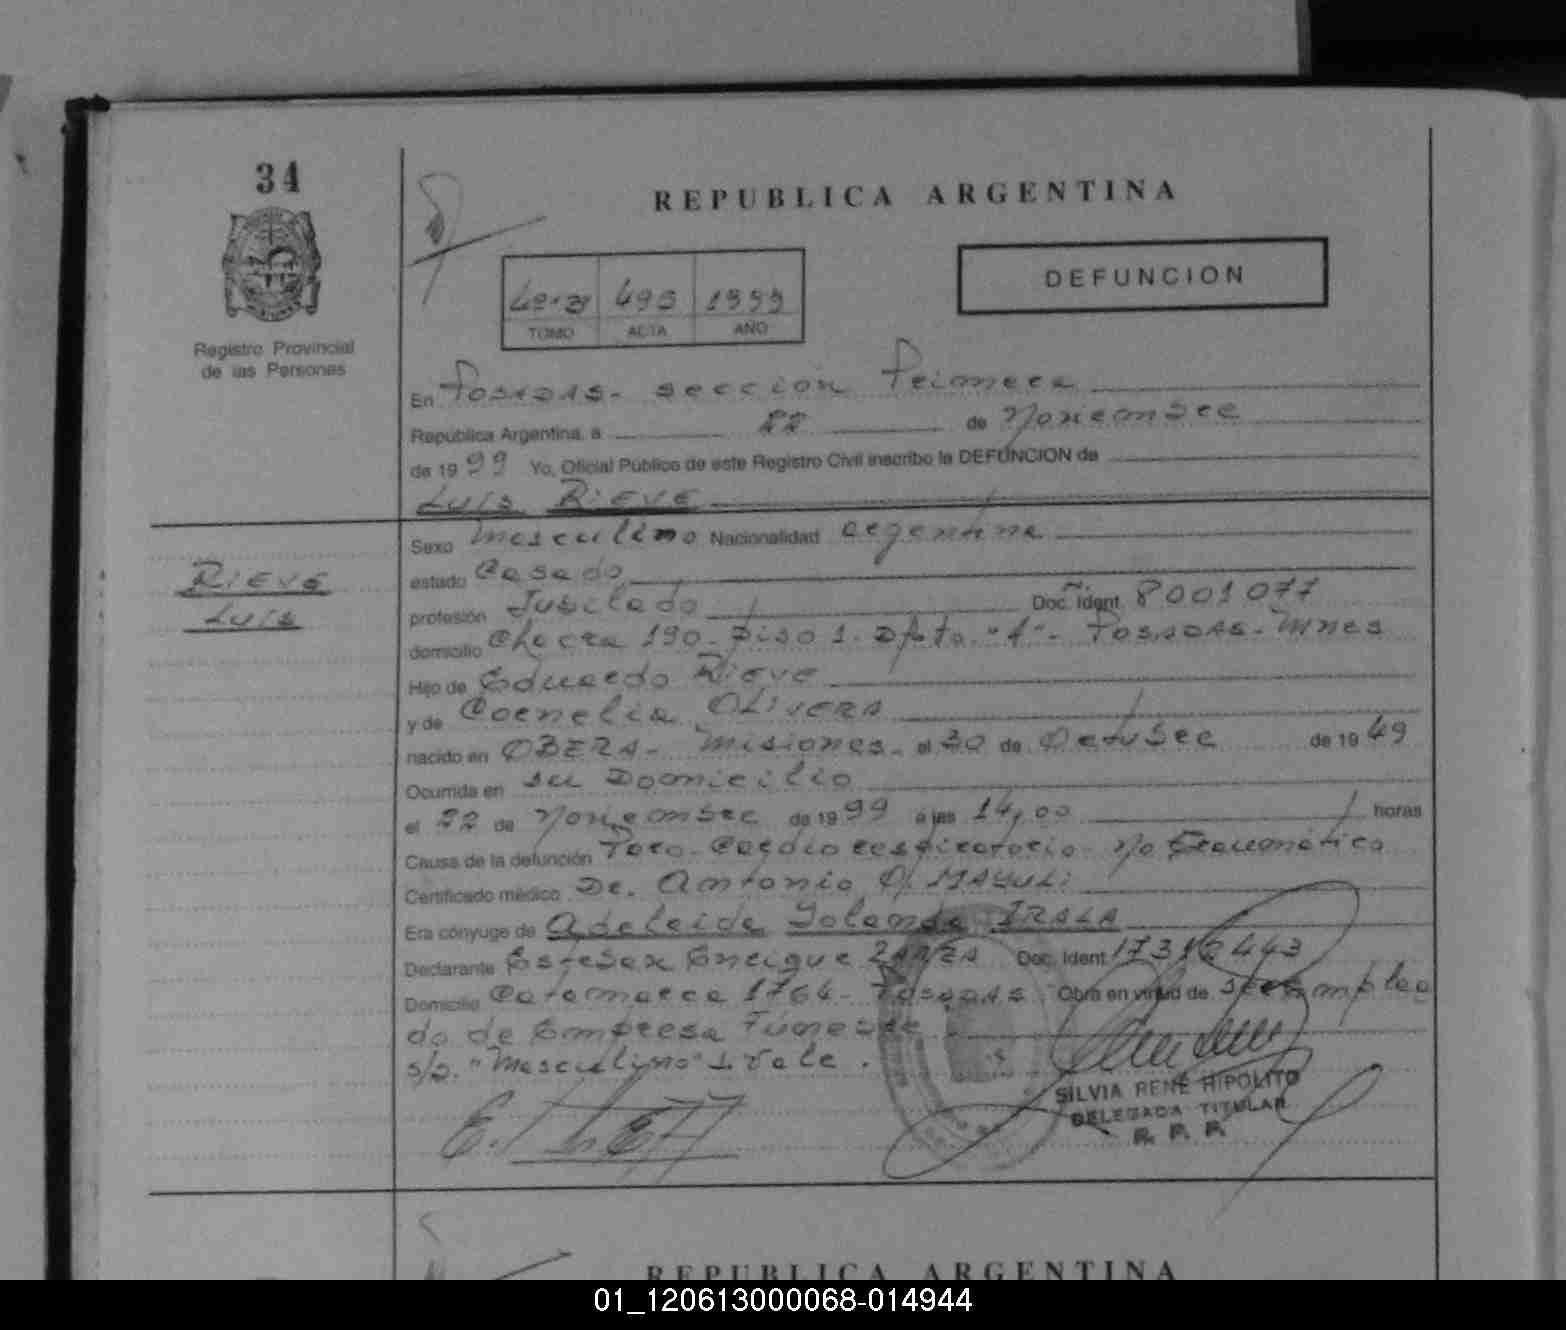 34
REPUBLICA ARGENTINA
DEFUNCION
493 1999
TOMO ACTA AÑO
Registro Provincial
de las Personas
En Posadas - sección Primera
República Argentina, a 22 de Noviembre
de 1999 Yo, Oficial Público de este Registro Civil inscribo la DEFUNCION de
Luis RIEVE
Sexo Masculino Nacionalidad argentina
RIEVE
Luis
estado Casado
profesión Jubilado Doc. Ident. 8001077
domicilio Chacra 190 - Piso 1 - Dpto. "A" - Posadas - Mnes
Hijo de Eduardo Rieve
y de Cornelia OLIVERA
nacido en OBERA - Misiones - el 30 de Octubre de 1949
Ocurrida en su Domicilio
el 22 de Noviembre de 1999 a las 14,00 horas
Causa de la defunción Paro - Cardiorespiratorio - No Traumático
Certificado médico Dr. Antonio
Era cónyuge de Adelaida Yolanda IRALA
Declarante Esteban Enrique Doc. Ident.
Domicilio Catamarca 1764 - Posadas Obra en virtud de ser Emplea
do de Empresa Fúnebre
s/b. "Masculino" - Vale.
SILVIA RENE HIPOLITO
DELEGADA TITULAR
R. P. P.
REPUBLICA ARGENTINA
01_120613000068-014944